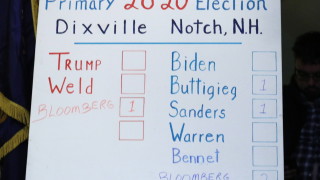 Primary 2020 Election
Dixville Notch, N.H.
TRUMP
Weld
BLOOMBERG 1
Biden
Buttigieg 1
Sanders 1
Warren
Bennet
BLOOMBERG 2